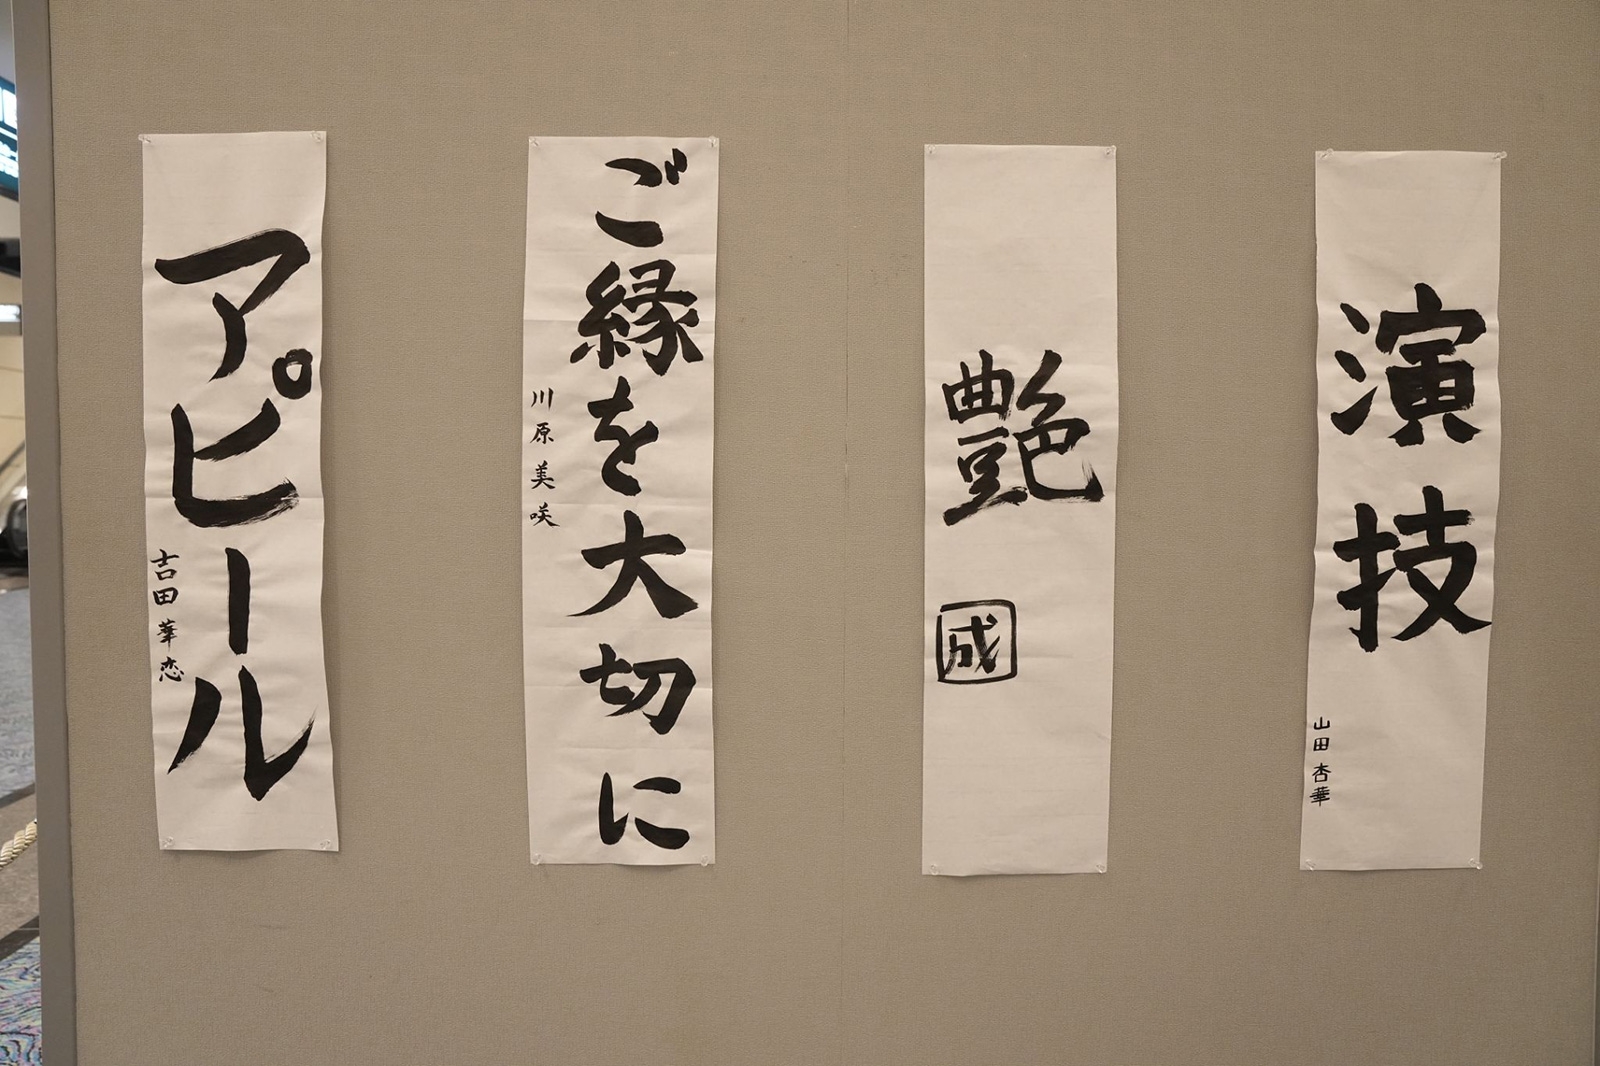 演技
山田杏華
艶
成
ご縁を大切に
川原美咲
アピール
吉田華恋